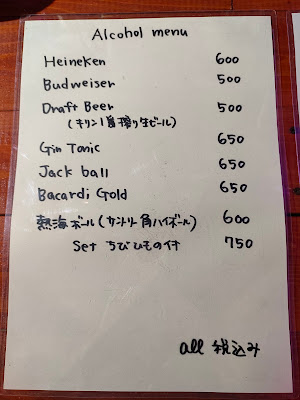 Alcohol menu
Heineken 600
Budweiser 500
Draft Beer 500
(キリン1番搾り生ビール)
Gin Tonic 650
Jack ball 650
Bacardi Gold 650
熱海ボール(サントリー角ハイボール) 600
Set ちびひもの付 750
all 税込み